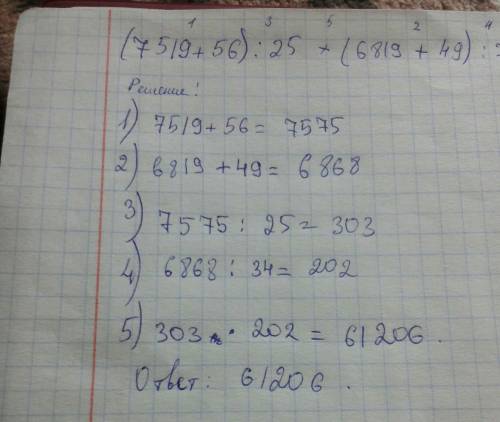 1 3 5 2 4
(7519+56) : 25 * (6819 + 49) :
Решение:
1) 7519+56= 7575
2) 6819 +49= 6868
3) 7575 : 25= 303
4) 6868 : 34= 202
5) 303 · 202 = 61206.
Ответ: 61206.